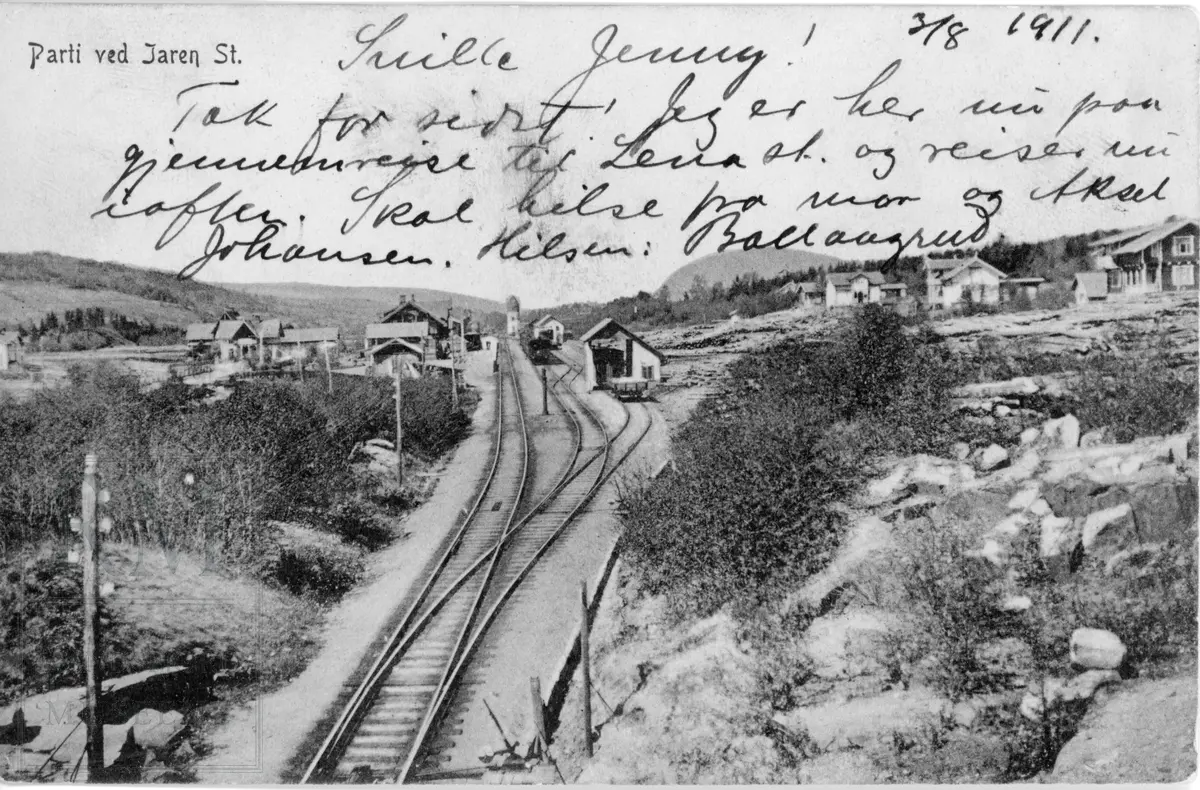 Parti ved Jaren St.
3/8 1911.
Snille Jenny!
Tak for sidst! Jeg er her nu paa
gjennemreise til Lena st. og reiser nu
iaften. Skal hilse fra mor og Aksel
Johansen. Hilsen: Ballangrud.